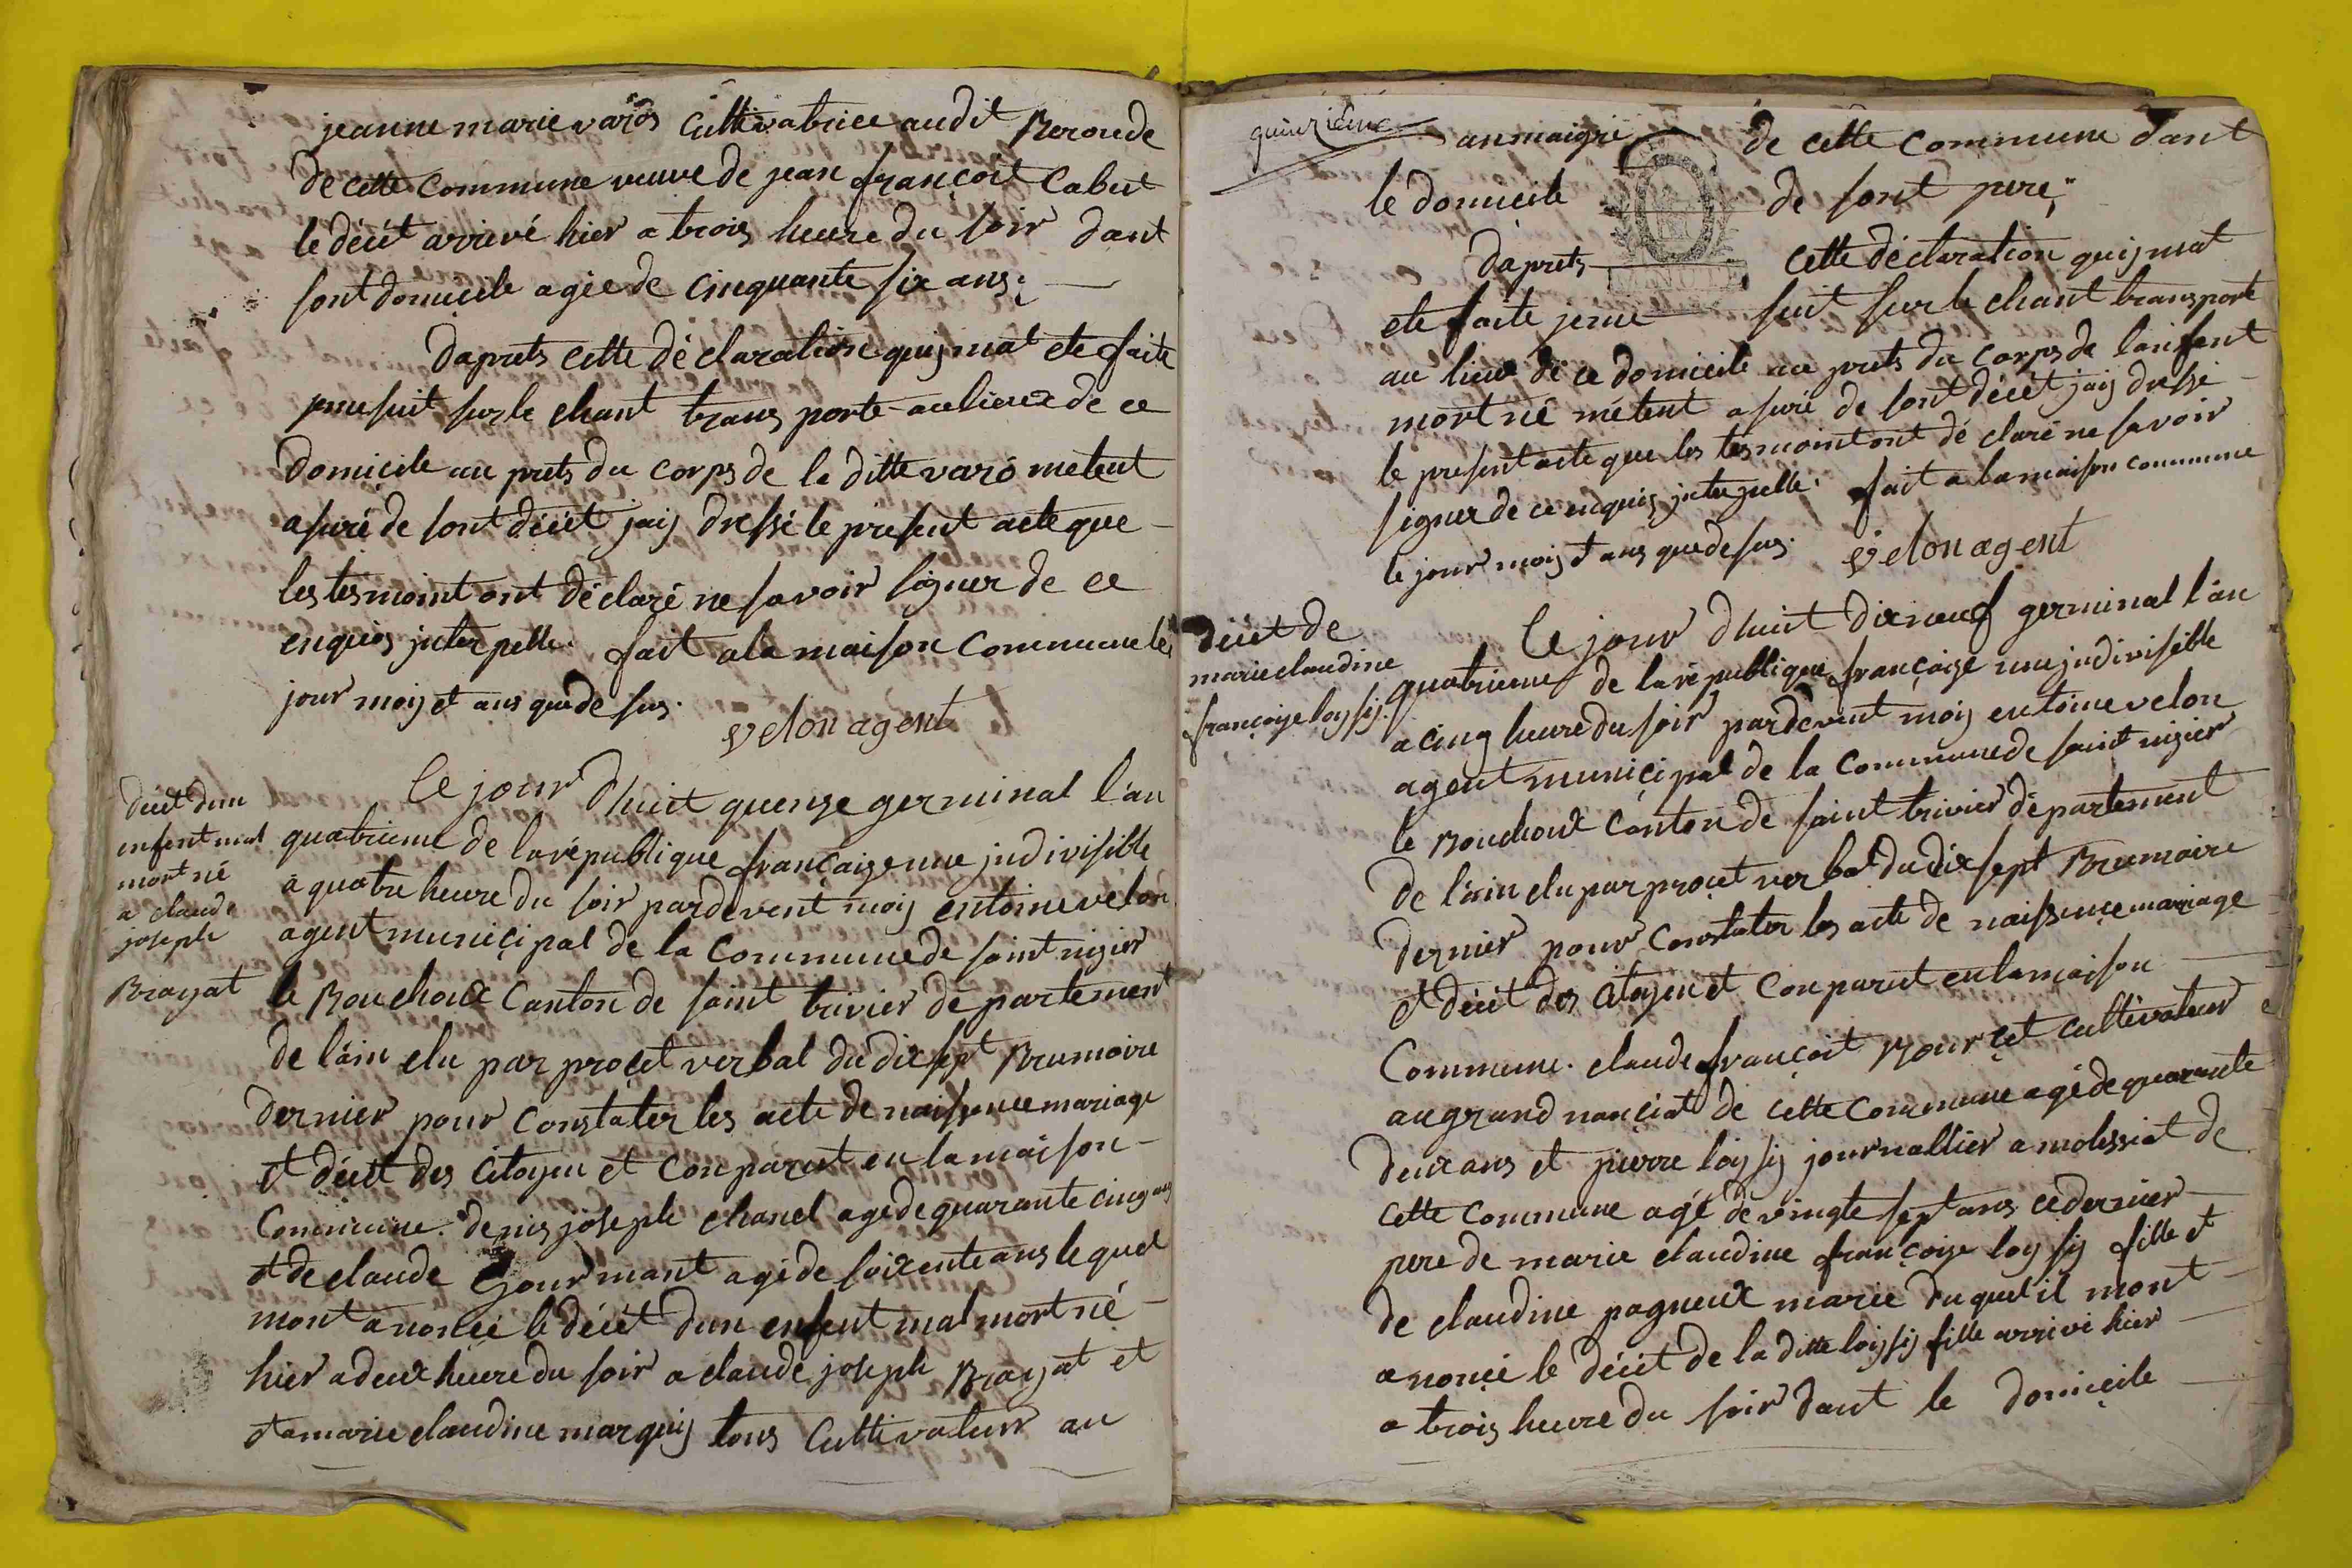 jeanne marie varos Cultivatrice audit Beroude
de cette Commune veuve de jean françoit Cabut
le décét arrivé hier a trois heure du soir dant
sont domicile agée de Cinquante six ans;
daprets cette déclaration quis mat ete faite
jme suit sur le chant trans porte au lieux de ce
domicile au prets du Corps de la ditte varo metent
asuré de sont décét jais dressé le present acte que
les tesmoint ont déclaré ne savoir signer de ce
enquis jnter pelle. fait a la maison Commune le
jour mois et ans que de sus.
velon agent
décét dun
enfent mal
mort né
a claude
joseph
Brayat
Ce jour dhuit quense germinal l'an
quatrieme de la république françaize une jndivisible
a quatre heure du soir pardevent mois entoine velon
agent municipal de la Commune de saint nizier
le Bouchoux Canton de saint trivier departement
de láin elu par procet verbal du dix sept Brumaire
dernier pour Constater les acte de naissence mariage
et décét des Citoyen et Conparut en la maison
Commune. denis joseph chanel agé de quarante cinq ans
et de claude Gourmant agé de soixente ans le quel
mont anoncé le décét dun enfent mal mort né
hier a deux heure du soir a claude joseph Brayat et
et a marie claudine marquis tous Cultivateur au
quinzieme
anmaigre de cette Commune dant
le domicile de sont pere;
daprets cette déclaration quis mat
ete faite jeme suit sur le chant transporte
au lieux de ce domicile au prets du Corps de lenfent
mort né métent asuré de sont décét jais dressé
le present acte que les tesmoint ont dé claré ne savoir
signer de ce enquis jnterpellé. fait a la maison commune
le jour mois et ans que de sus. velon agent
décét de
marie claudine
françoise loy sis.
Ce jour dhuit dix neuf germinal l'an
quatrieme de la république françaize une jndivisible
a cinq heure du soir pardevent mois entoine velon
agent municipal de la Commune de saint nizier
le Bouchoux Canton de saint trivier département
de láin elu par procet verbal du dix sept Brumaire
dernier pour Constater les acte de naissence mariage
et décét des Citoyen et Conparut en la maison
Commune. claude françoit Bourcet cultivateur
au grand nanciat de cette Commune agé de quarante
deux ans et pierre loy sis journallier a molissiat de
cette Commune agé de vingte sept ans ce dernier
pere de marie claudine françoise loy sis fille et
de claudine pagneux marié du quel il mont
anoncé le décét de la ditte loy sis fille arrivé hier
a trois heure du soir dant le domicile